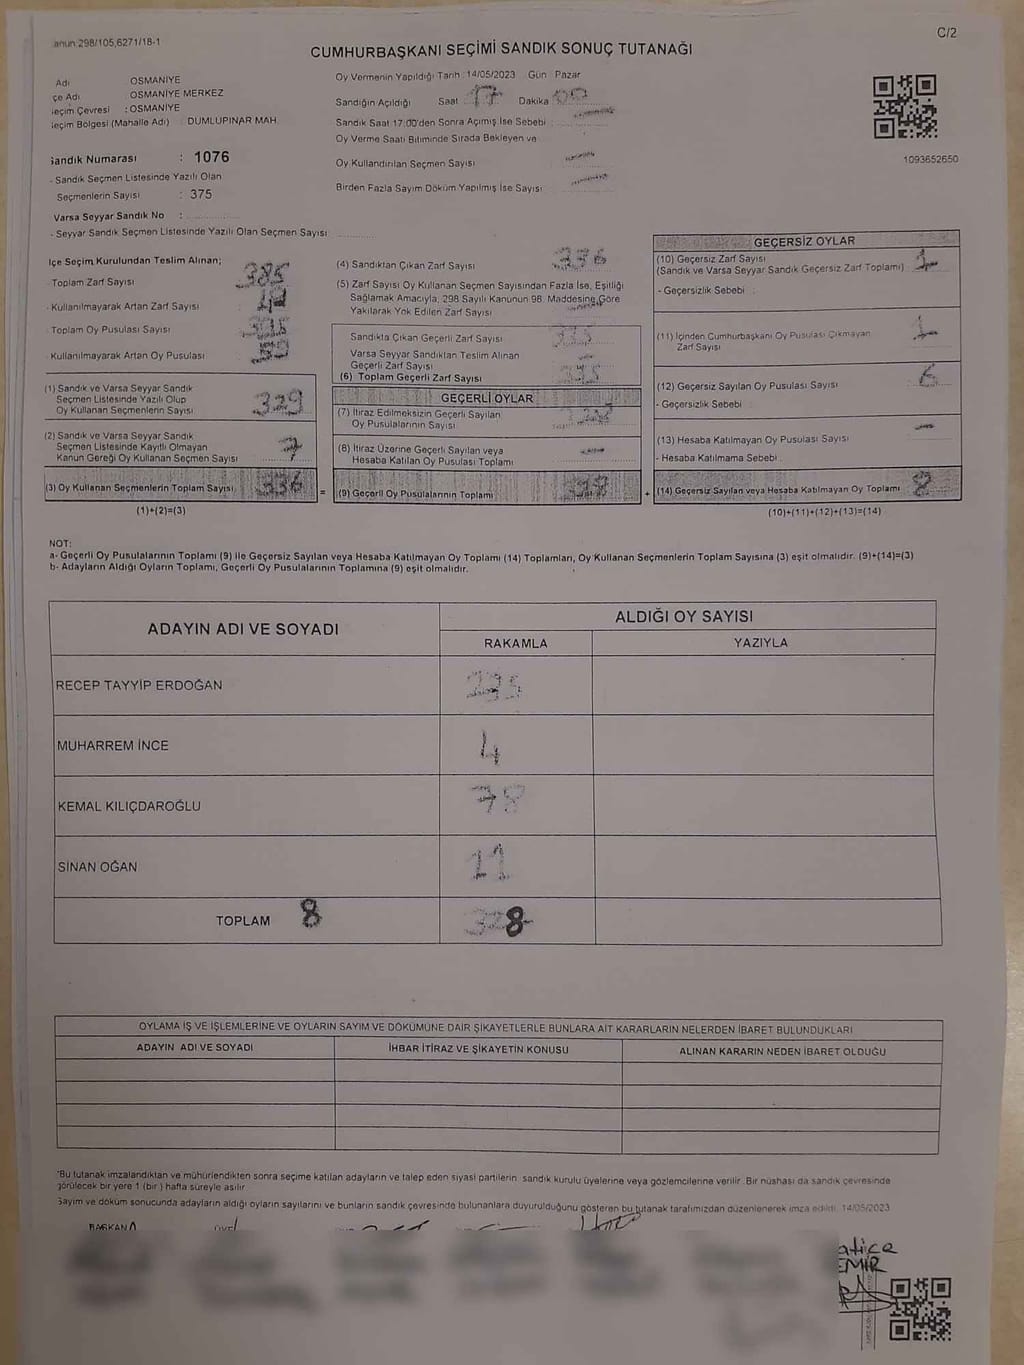 anun:298/105,6271/18-1
C/2
CUMHURBAŞKANI SEÇİMİ SANDIK SONUÇ TUTANAĞI
Adı OSMANİYE
çe Adı OSMANİYE MERKEZ
eçim Çevresi : OSMANİYE
eçim Bölgesi (Mahalle Adı) : DUMLUPINAR MAH.
Sandık Numarası : 1076
- Sandık Seçmen Listesinde Yazılı Olan
Seçmenlerin Sayısı : 375
Varsa Seyyar Sandık No :
- Seyyar Sandık Seçmen Listesinde Yazılı Olan Seçmen Sayısı
Oy Vermenin Yapıldığı Tarih :14/05/2023 Gün Pazar
Sandığın Açıldığı Saat 17 Dakika 00
Sandık Saat 17:00'den Sonra Açımış İse Sebebi
Oy Verme Saati Bitiminde Sırada Bekleyen ve
Oy Kullandırılan Seçmen Sayısı
Birden Fazla Sayım Döküm Yapılmış İse Sayısı
1093652650
lçe Seçim Kurulundan Teslim Alınan;
- Toplam Zarf Sayısı 385
- Kullanılmayarak Artan Zarf Sayısı
- Toplam Oy Pusulası Sayısı
- Kullanılmayarak Artan Oy Pusulası
(1) Sandık ve Varsa Seyyar Sandık
Seçmen Listesinde Yazılı Olup
Oy Kullanan Seçmenlerin Sayısı 329
(2) Sandık ve Varsa Seyyar Sandık
Seçmen Listesinde Kayıtlı Olmayan
Kanun Gereği Oy Kullanan Seçmen Sayısı 7
(3) Oy Kullanan Seçmenlerin Toplam Sayısı 336
(1)+(2)=(3)
(4) Sandıktan Çıkan Zarf Sayısı 336
(5) Zarf Sayısı Oy Kullanan Seçmen Sayısından Fazla İse, Eşitliği
Sağlamak Amacıyla, 298 Sayılı Kanunun 98. Maddesine Göre
Yakılarak Yok Edilen Zarf Sayısı
Sandıkta Çıkan Geçerli Zarf Sayısı 335
Varsa Seyyar Sandıktan Teslim Alınan
Geçerli Zarf Sayısı
(6) Toplam Geçerli Zarf Sayısı 335
GEÇERLİ OYLAR
(7) İtiraz Edilmeksizin Geçerli Sayılan
Oy Pusulasının Sayısı 328
(8) İtiraz Üzerine Geçerli Sayılan veya
Hesaba Katılan Oy Pusulası Toplamı
= (9) Geçerli Oy Pusulalarının Toplamı 328 +
GEÇERSİZ OYLAR
(10) Geçersiz Zarf Sayısı 1
(Sandık ve Varsa Seyyar Sandık Geçersiz Zarf Toplamı)
- Geçersizlik Sebebi
(11) İçinden Cumhurbaşkanı Oy Pusulası Çıkmayan 1
Zarf Sayısı
(12) Geçersiz Sayılan Oy Pusulası Sayısı 6
- Geçersizlik Sebebi
(13) Hesaba Katılmayan Oy Pusulası Sayısı -
- Hesaba Katılmama Sebebi
(14) Geçersiz Sayılan veya Hesaba Katılmayan Oy Toplamı 8
(10)+(11)+(12)+(13)=(14)
NOT:
a- Geçerli Oy Pusulalarının Toplamı (9) ile Geçersiz Sayılan veya Hesaba Katılmayan Oy Toplamı (14) Toplamları, Oy Kullanan Seçmenlerin Toplam Sayısına (3) eşit olmalıdır. (9)+(14)=(3)
b- Adayların Aldığı Oyların Toplamı, Geçerli Oy Pusulalarının Toplamına (9) eşit olmalıdır.
ADAYIN ADI VE SOYADI ALDIĞI OY SAYISI
RAKAMLA YAZIYLA
RECEP TAYYİP ERDOĞAN 235
MUHARREM İNCE 4
KEMAL KILIÇDAROĞLU 78
SİNAN OĞAN 11
TOPLAM 8 328
OYLAMA İŞ VE İŞLEMLERİNE VE OYLARIN SAYIM VE DÖKÜMÜNE DAİR ŞİKAYETLERLE BUNLARA AİT KARARLARIN NELERDEN İBARET BULUNDUKLARI
ADAYIN ADI VE SOYADI İHBAR İTİRAZ VE ŞİKAYETİN KONUSU ALINAN KARARIN NEDEN İBARET OLDUĞU
"Bu tutanak imzalandıktan ve mühürlendikten sonra seçime katılan adayların ve talep eden siyasi partilerin sandık kurulu üyelerine veya gözlemcilerine verilir. Bir nüshası da sandık çevresinde
görülecek bir yere 1 (bir) hafta süreyle asılır
Sayım ve döküm sonucunda adayların aldığı oyların sayılarını ve bunların sandık çevresinde bulunanlara duyurulduğunu gösteren bu tutanak tarafımızdan düzenlenerek imza edildi. 14/05/2023
BAŞKAN
atice
EMİR